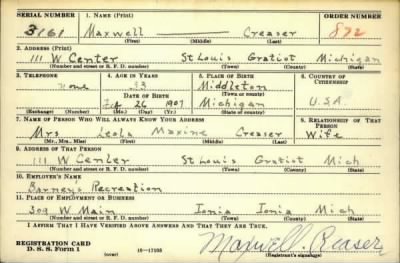 SERIAL NUMBER 1. NAME (Print) ORDER NUMBER
3161 Maxwell Creaser 872
(First) (Middle) (Last)
2. ADDRESS (Print)
111 W Center St Louis Gratiot Michigan
(Number and street or R. F. D. number) (Town) (County) (State)
3. TELEPHONE 4. AGE IN YEARS 5. PLACE OF BIRTH 6. COUNTRY OF CITIZENSHIP
none 33 Middleton
DATE OF BIRTH (Town or county)
Feb 26 1907 Michigan U.S.A.
(Exchange) (Number) (Mo.) (Day) (Yr.) (State or country)
7. NAME OF PERSON WHO WILL ALWAYS KNOW YOUR ADDRESS 8. RELATIONSHIP OF THAT PERSON
Mrs Leola Maxine Creaser Wife
(Mr., Mrs., Miss) (First) (Middle) (Last)
9. ADDRESS OF THAT PERSON
111 W Center St Louis Gratiot Mich
(Number and street or R. F. D. number) (Town) (County) (State)
10. EMPLOYER'S NAME
Barney's Recreation
11. PLACE OF EMPLOYMENT OR BUSINESS
309 W Main Ionia Ionia Mich
(Number and street or R. F. D. number) (Town) (County) (State)
I AFFIRM THAT I HAVE VERIFIED ABOVE ANSWERS AND THAT THEY ARE TRUE.
REGISTRATION CARD
D. S. S. Form 1 (over) 16—17105 Maxwell Creaser
(Registrant's signature)